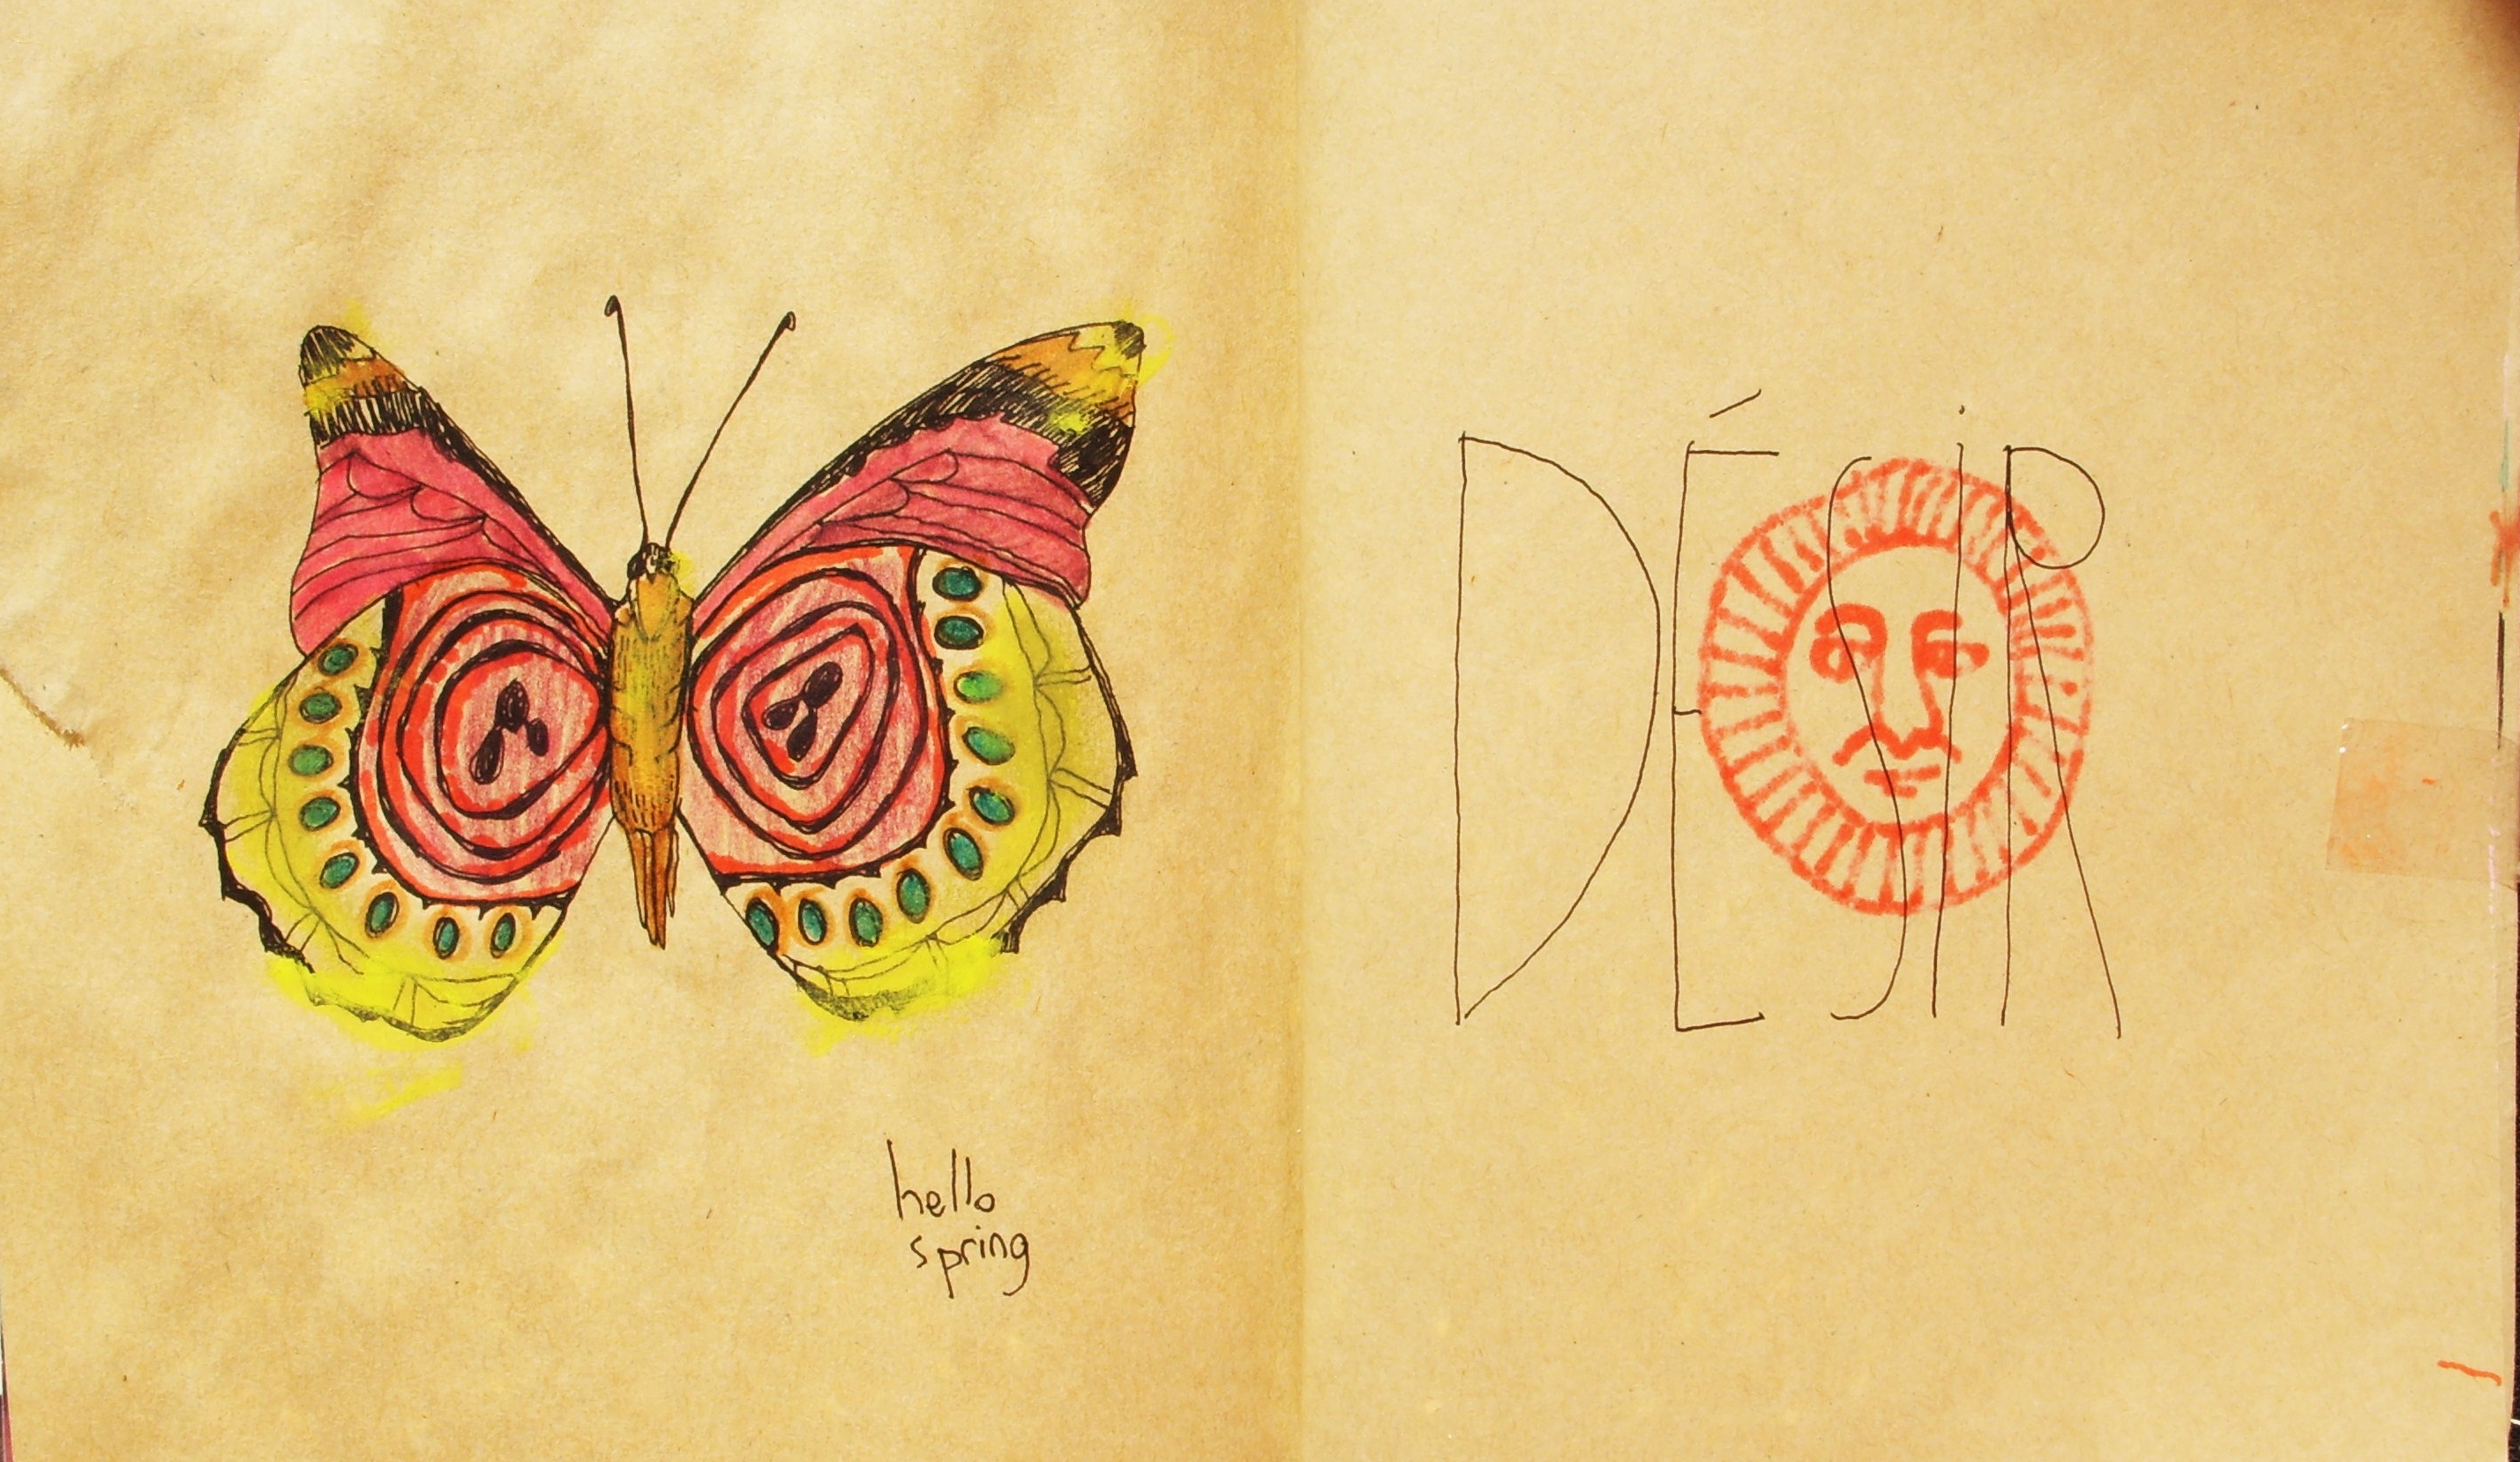 hello
spring
DÉSiR